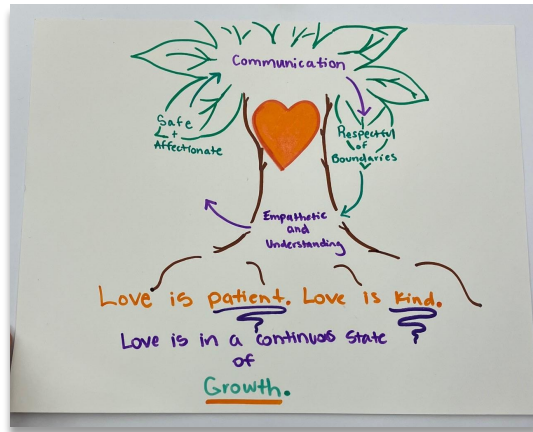 Communication
Safe
+
Affectionate
Respectful
of
Boundaries
Empathetic
and
Understanding
Love is patient. Love is kind.
Love is in a continuos state
of
Growth.